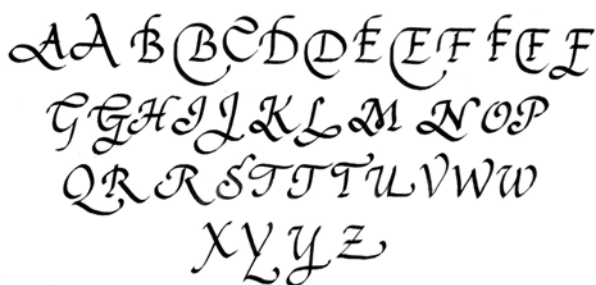 A A B B C D D E E F F F F
G G H I J K L M N O P
Q R R S T T T U V W W
X Y Y Z